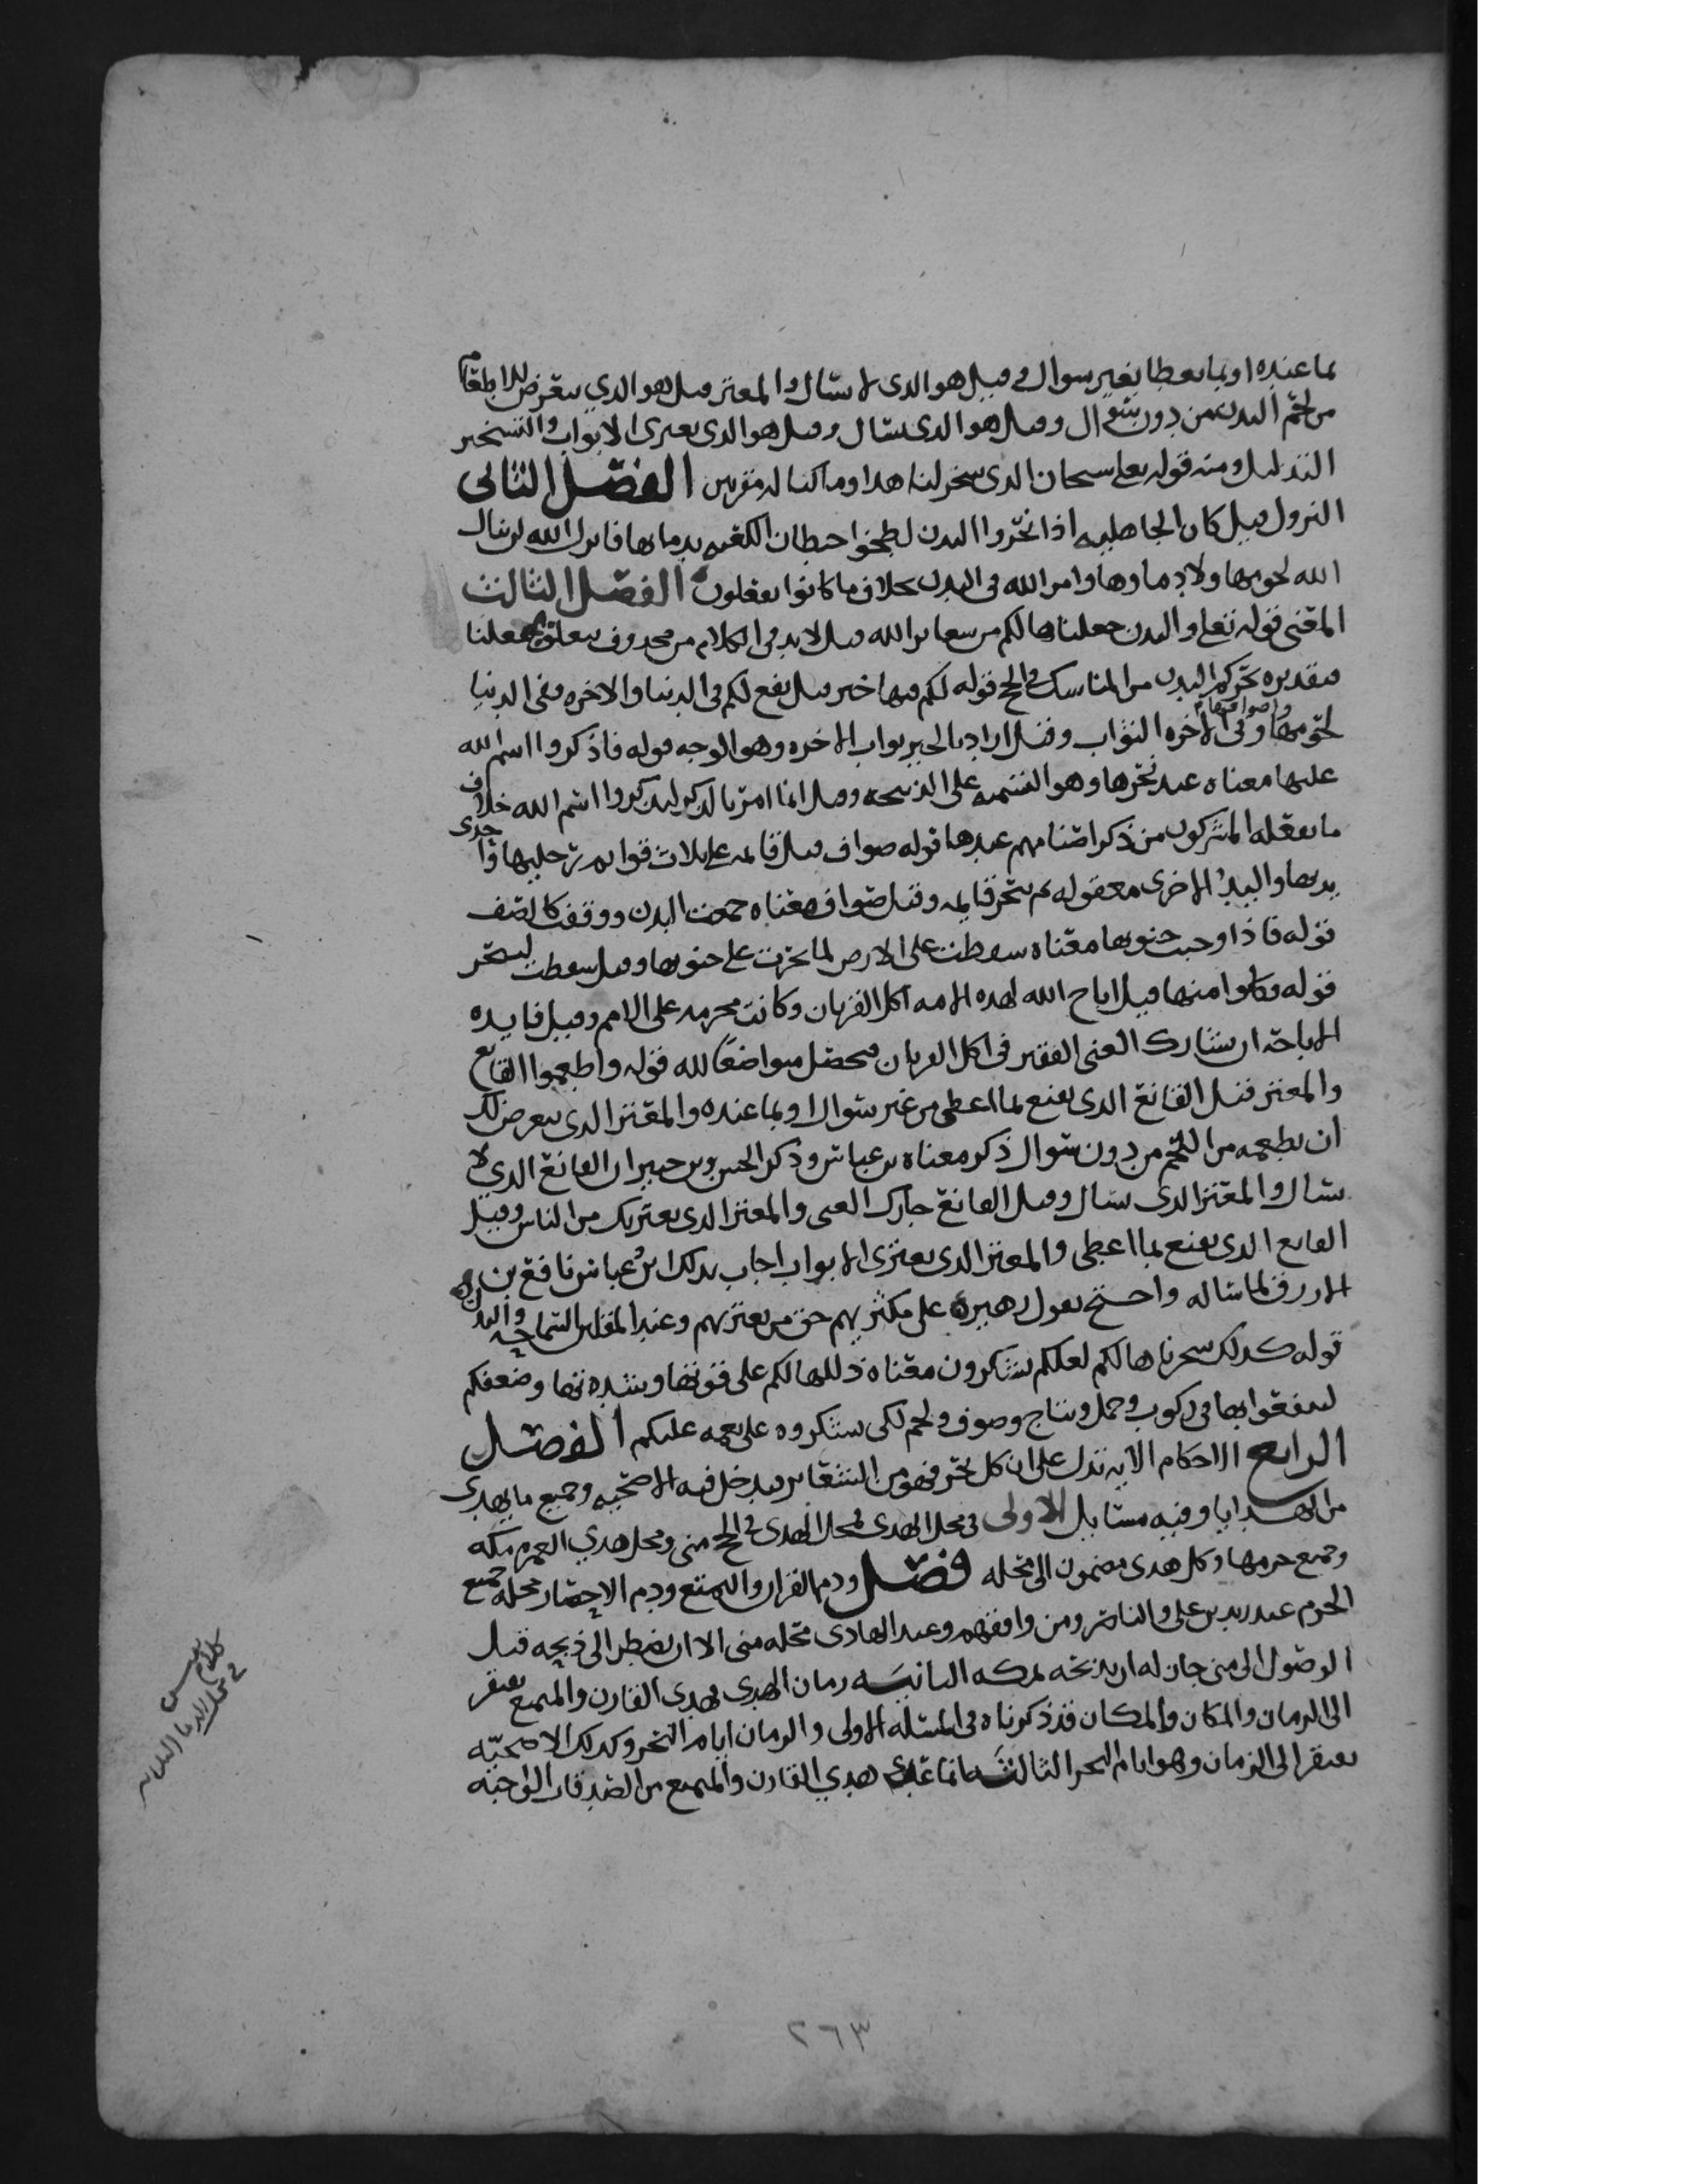 بما عنده او بما يعطا بغير سوال وقيل هو الذي لا يسال والمعتر قيل هو الذي يتعرض للاطعام
من لحم البدن من دون سوال وقيل هو الذي يسال وقيل هو الذي يعترى الابواب والتسخير
التذليل ومنه قوله تعالى سبحان الذي سخر لنا هذا وما كنا له مقرنين الفصل الثاني
النزول قيل كان الجاهليه اذا نحروا البدن لطخوا حيطان الكعبه بدمايها فانزل الله لن ينال
الله لحومها ولا دماوها وامر الله في البدن بخلاف ما كانوا يفعلون الفصل الثالث
المعنى قوله تعالى والبدن جعلناها لكم من شعاير الله قيل لابد في الكلام من محذوف يتعلق به جعلنا
وتقديره نحركم البدن من المناسك في الحج قوله لكم فيها خير قيل نفع لكم في الدنيا والاخره ففي الدنيا
لحومها واصوافها وفي الاخره الثواب وقيل اراد بالخير ثواب الاخره وهو الوجه قوله فاذكروا اسم الله
عليها معناه عند نحرها وهو التسميه على الذبيحه وقيل انما امر بالذكر ليذكروا اسم الله خلاف
ما يفعله المشركون من ذكر اصنامهم عندها قوله صواف قيل قايمه على ثلاث قوايم رجليها واحدى
يديها واليد الاخرى معقوله ثم ينحر قايمه وقيل صواف معناه جمعت البدن ووقفت كالصف
قوله فاذا وجبت جنوبها معناه سقطت على الارض لما نحرت على جنوبها وقيل سقطت لتنحر
قوله فكلوا منها قيل اباح الله لهذه الامه اكل القربان وكانت محرمه على الامم وقيل فايده
الاباحه ان يشارك الغني الفقير في اكل القربان فيحصل متواضعا لله قوله واطعموا القانع
والمعتر قيل القانع الذي يقنع بما اعطي من غير سوال او بما عنده والمعتر الذي يتعرض لك
ان يطعمه من اللحم من دون سوال ذكر معناه بن عباس وذكر الحسن وبن جبير ان القانع الذي لا
يسال والمعتر الذي يسال وقيل القانع جارك الغني والمعتر الذي يعتريك من الناس وقيل
القانع الذي يقنع بما اعطي والمعتر الذي يعترى الابواب اجاب بذلك ابن عباس نافع بن
الازرق لما ساله واحتج بقول زهير على مكثريهم حق من يعتريهم وعند المقلين السماحة والبذل
قوله كذلك سخرناها لكم لعلكم تشكرون معناه ذللها لكم على قوتها وشدتها وضعفكم
لتنتفعوا بها في ركوب وحمل ونتاج وصوف ولحم لكي تشكروه على نعمه عليكم الفصل
الرابع الاحكام الايه تدل على ان كل نحر فهو من الشعاير فيدخل فيه الاضحيه وجميع ما يهدى
من الهدايا وفيه مسايل الاولى في محل الهدى فمحل الهدي في الحج منى ومحل هدي العمره مكه
وجميع حرمها وكل هدى مضمون الى محله فصل ودم القران والتمتع ودم الاحصار محله جميع
الحرم عند زيد بن على والناصر ومن وافقهم وعند الهادى محله منى الا ان يضطر الى ذبحه قبل
الوصول الى منى جاز له ان يذبحه بمكه الثانيه زمان الهدي فهدى القارن والمتمتع يفتقر
الى الزمان والمكان والمكان قد ذكرناه في المسئله الاولى والزمان ايام النحر وكذلك الاضحيه
يفتقر الى الزمان وهو ايام النحر الثالثه ما عدى هدي القارن والمتمتع من الصدقات الواجبه
كلام
٢٦٣